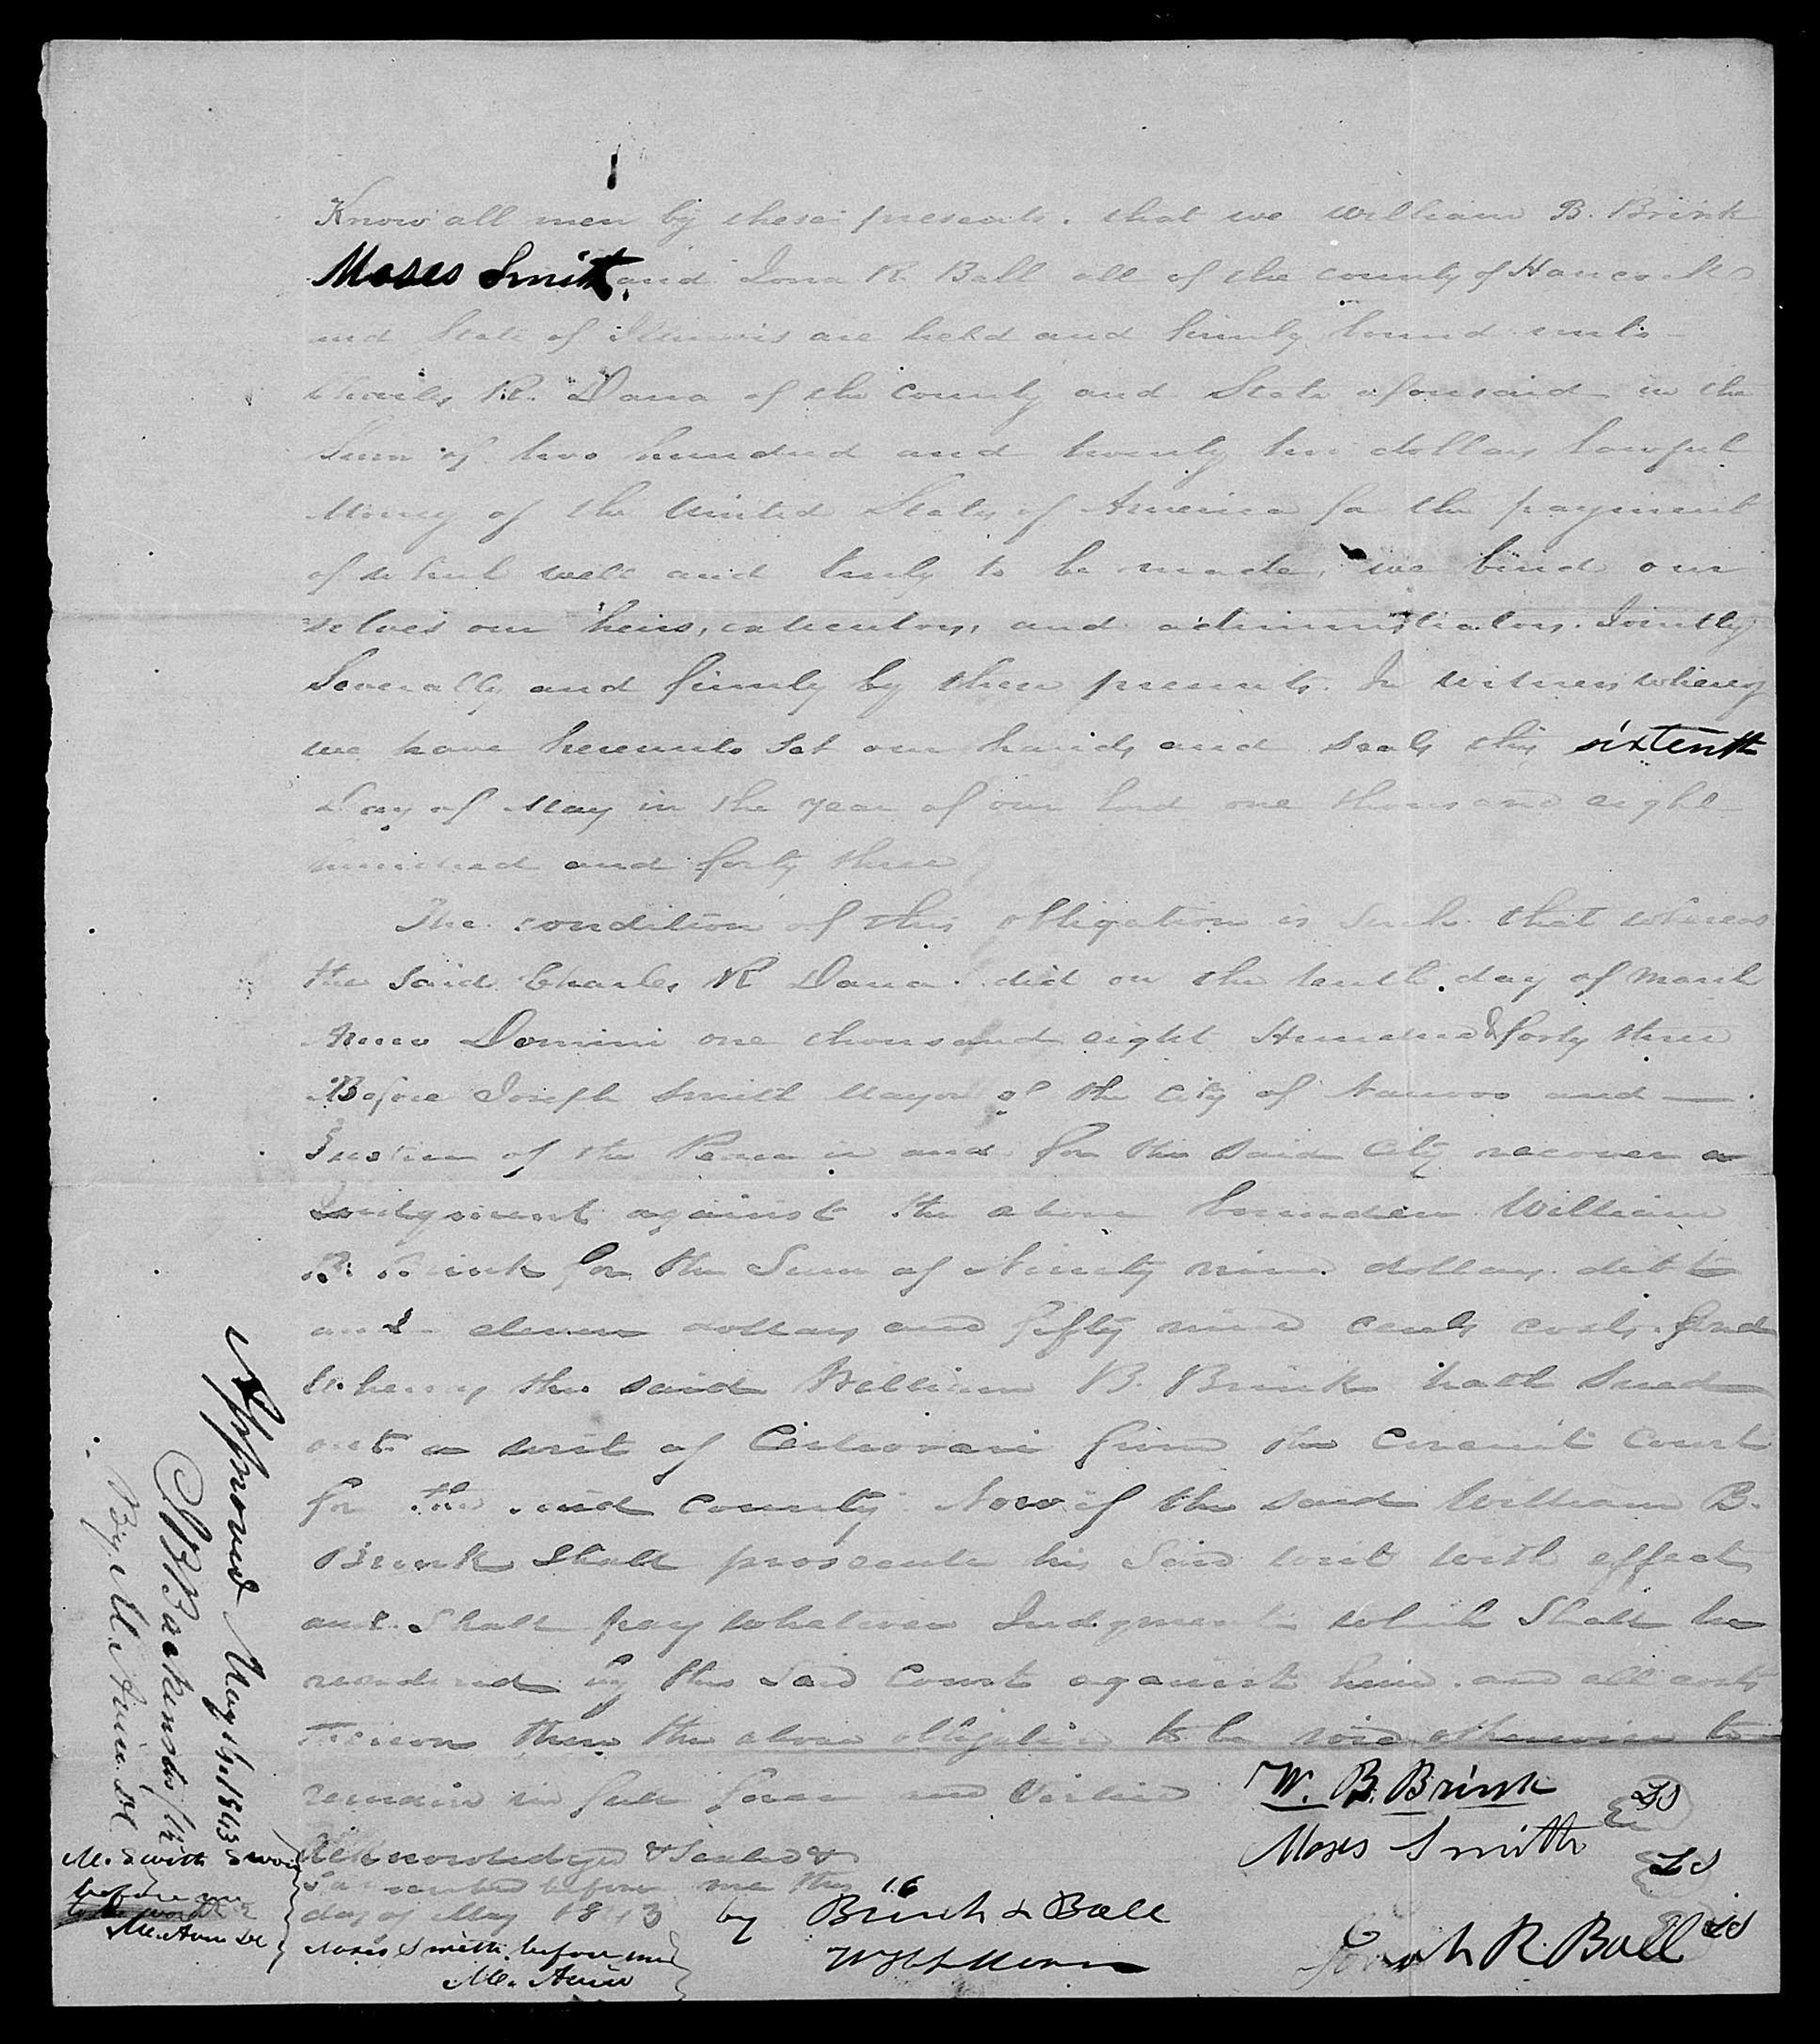 Know all men by these presents. that we William B. Brink
Moses Smith and Jona R. Ball all of the county of Hancock
and State of Illinois are held and firmly bound unto
Charles R. Dana of the County and State aforesaid in the
Sum of two hundred and twenty two dollars lawful
Money of the United States of America for the payment
of which well and truly to be made, we bind our
selves our heirs, executors, and administrators. Jointly
Severally and firmly by these presents. In witness whereof
we have hereunto Set our hands and seals this sixtenth
Day of May in the year of our Lord one thousand eight
hundred and forty three
The condition of this obligation is Such that whereas
the Said Charles R Dana did on the tenth day of March
Anno Domini one thousand eight Hundred & forty three
Before Joseph Smith Mayor of the City of Nauvoo and
Justice of the Peace in and for the Said City recover a
Judgment against the above bounden William
B. Brink for the Sum of Ninety nine dollars debt
and eleven dollars and fifty nine cents costs. And
Whereas the said William B. Brink hath Sued
out a writ of Certiorari from the Circuit Court
for the said County Now if the said William B.
Brink Shall prosecute his Said writ with effect
and Shall pay whatever Judgment which Shall be
rendered by the Said Court against him. and all costs
thereon then the above obligation to be void otherwise to
remain in full force and Virtue
W. B. Brink LS
Moses Smith LS
Jonah R. Ball LS
Acknowledged & Sealed &
before me this 16
day of May 1843 by Brink & Ball
Moses Smith before me
M. Avise
Approved May 16, 1843
J B Backenstos Clk
By M. Avise. DC
M. Smith Sworn
before me
M. Avise DC